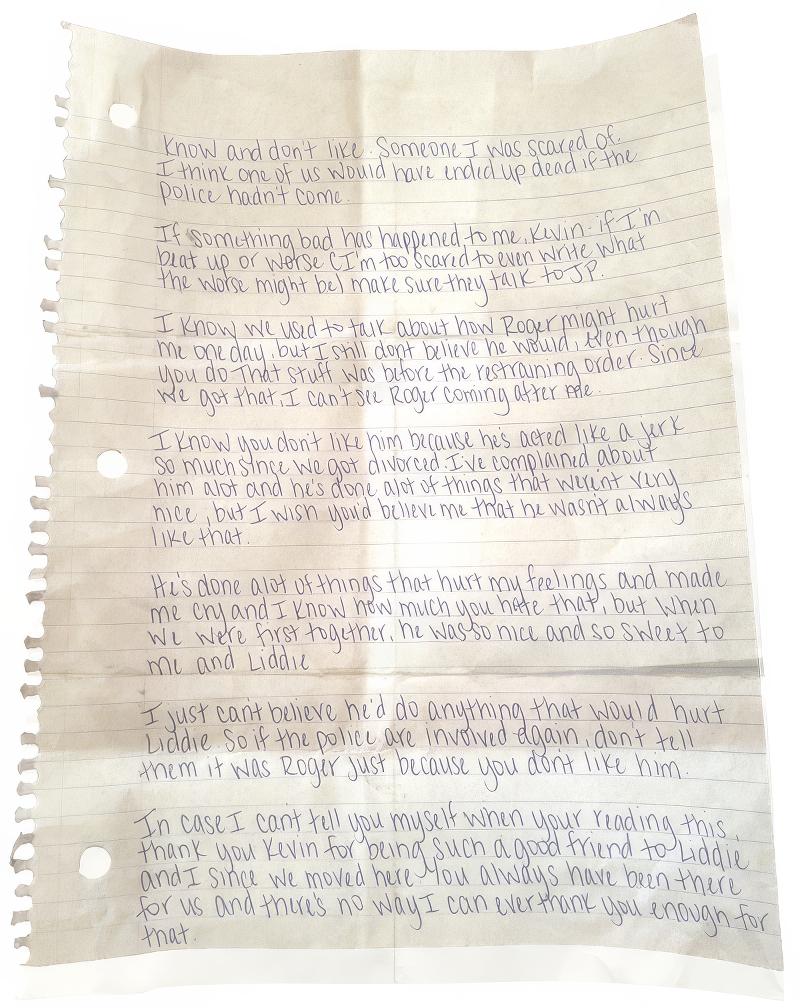 Know and don't like. Someone I was scared of.
I think one of us would have ended up dead if the
police hadn't come.
If something bad has happened to me, Kevin - if I'm
beat up or worse (I'm too scared to even write what
the worse might be) make sure they talk to JP.
I know we used to talk about how Roger might hurt
me one day, but I still dont believe he would, even though
you do. That stuff was before the restraining order. Since
we got that, I can't see Roger coming after me.
I know you don't like him because he's acted like a jerk
so much since we got divorced. I've complained about
him alot and he's done alot of things that weren't very
nice, but I wish you'd believe me that he wasn't always
like that.
He's done alot of things that hurt my feelings and made
me cry and I know how much you hate that, but when
we were first together, he was so nice and so sweet to
me and Liddie
I just can't believe he'd do anything that would hurt
Liddie. So if the police are involved again, don't tell
them it was Roger just because you don't like him.
In case I can't tell you myself when your reading this,
thank you Kevin for being such a good friend to Liddie
and I since we moved here. You always have been there
for us and there's no way I can ever thank you enough for
that.